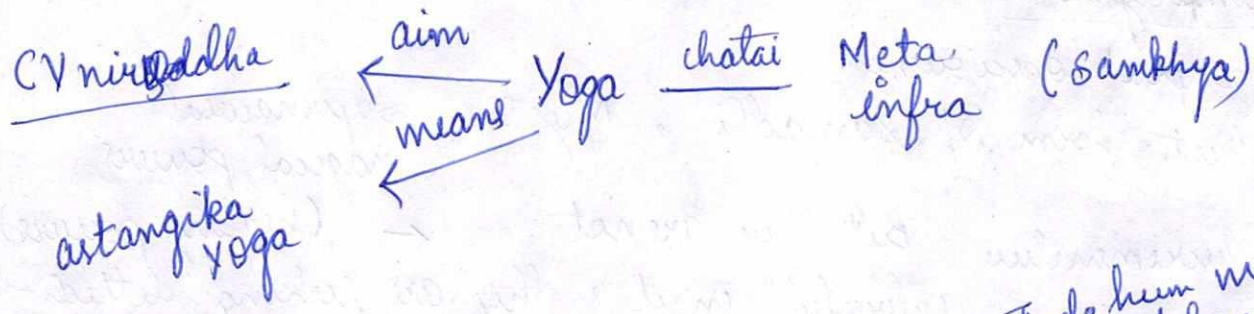 CV niroddha
aim
Yoga
chatai
Meta
infra
(Samkhya)
means
astangika
yoga